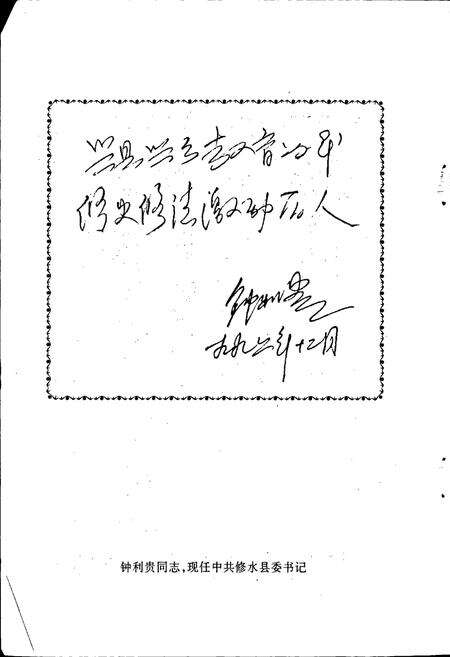 兴县兴乡
修史修志激励后人
钟利贵
九九六年十二月
钟利贵同志，现任中共修水县委书记